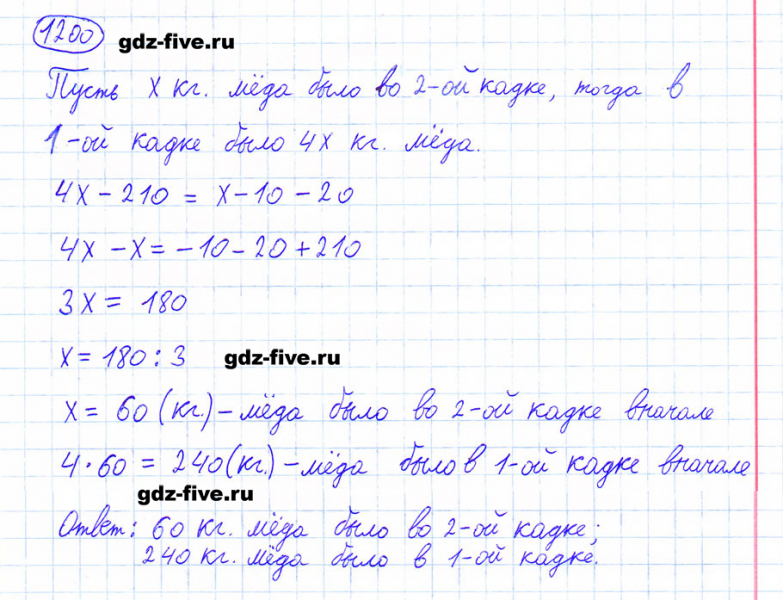 1200 gdz-five.ru
Пусть x кг. мёда было во 2-ой кадке, тогда в
1-ой кадке было 4x кг. мёда.
4x - 210 = x - 10 - 20
4x - x = - 10 - 20 + 210
3x = 180
x = 180 : 3 gdz-five.ru
x = 60 (кг.) - мёда было во 2-ой кадке вначале
4 · 60 = 240 (кг.) - мёда было в 1-ой кадке вначале
gdz-five.ru
Ответ: 60 кг. мёда было во 2-ой кадке;
240 кг. мёда было в 1-ой кадке.